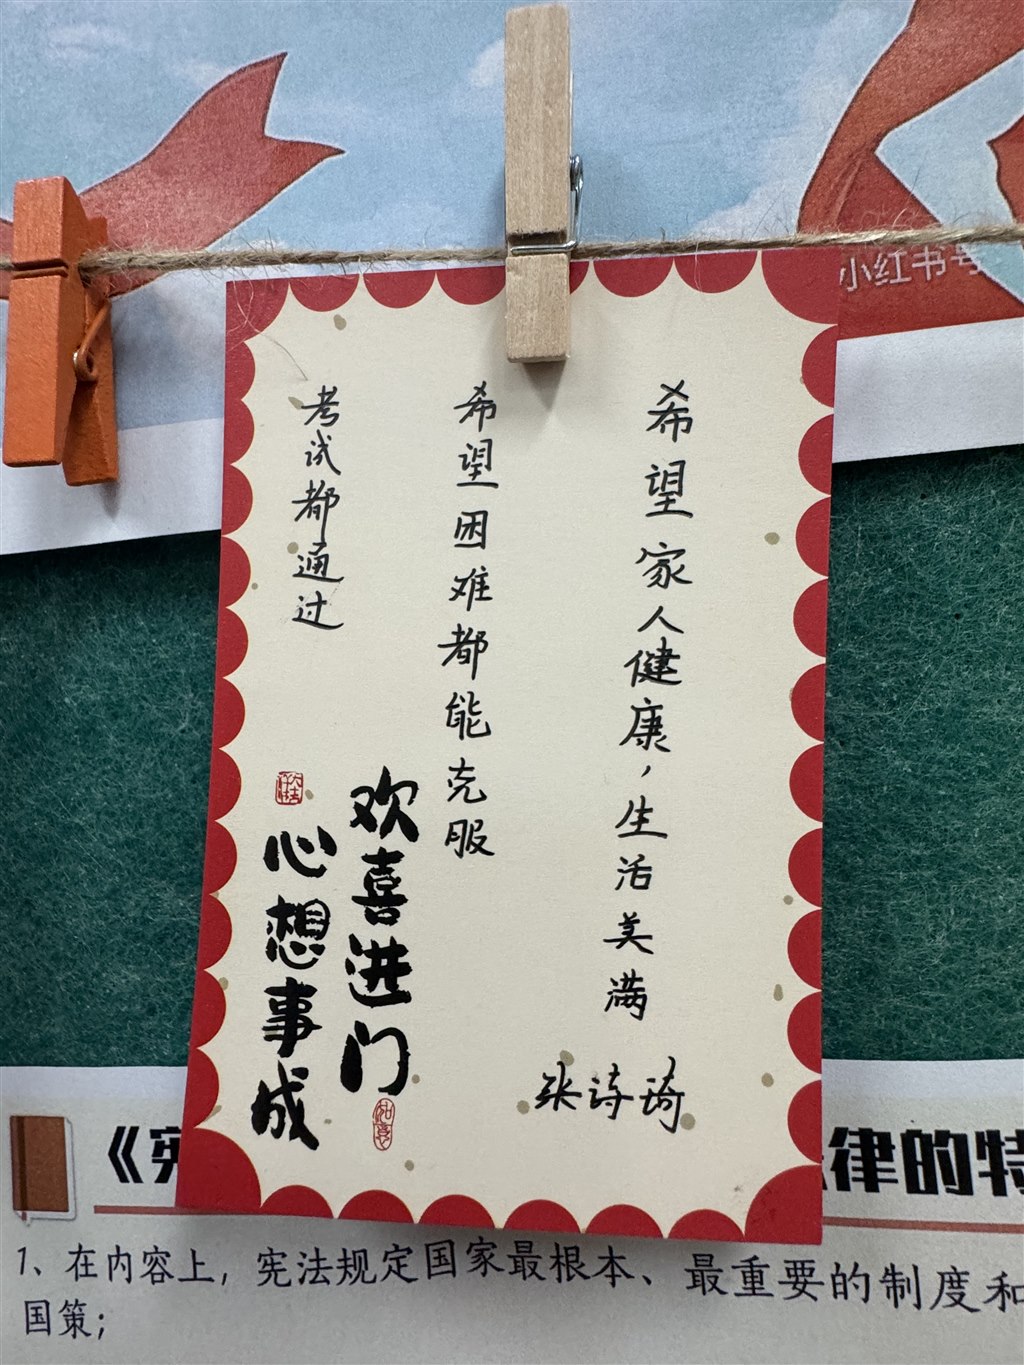 小红书号
希望家人健康，生活美满
希望困难都能克服
考试都通过
张诗琦
欢喜进门
心想事成
如意
《宪
律的特
1、在内容上，宪法规定国家最根本、最重要的制度和
国策；